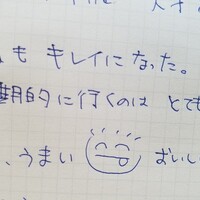 も キレイになった。
期的に行くのは とても
、うまい おいし